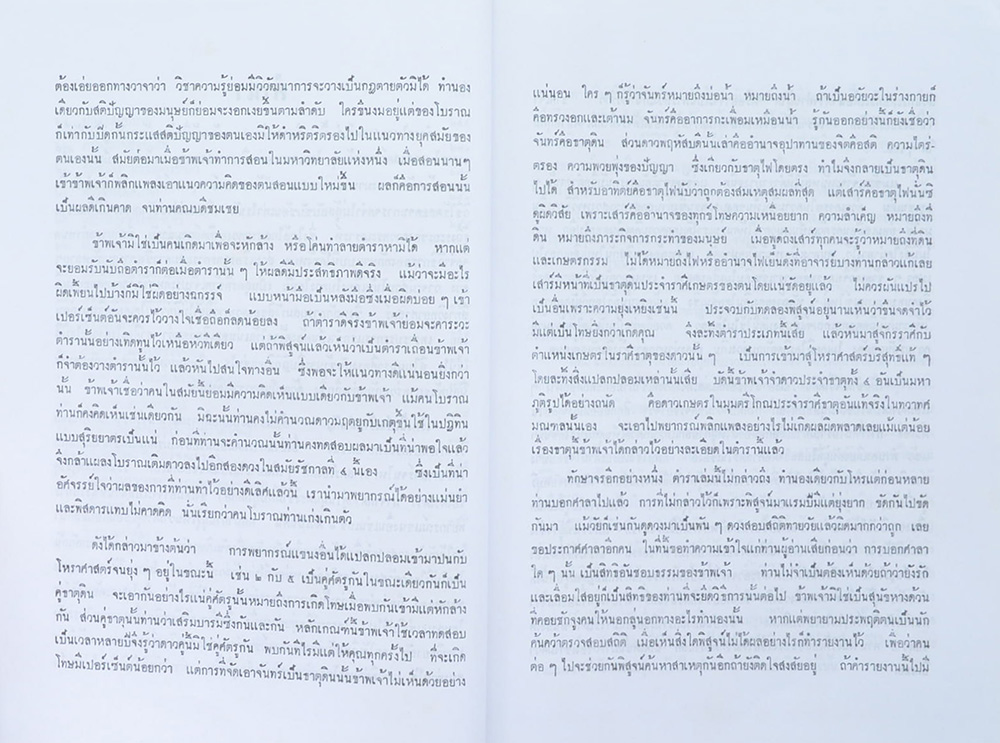 ต้องเอ่ยออกทางวาจาว่า วิชาความรู้ย่อมมีวิวัฒนาการจะวางเป็นกฎตายตัวมิได้ ทำนอง
เดียวกับสติปัญญาของมนุษย์ก็ย่อมจะงอกเงยขึ้นตามลำดับ ใครขืนงมอยู่แต่ของโบราณ
ก็เท่ากับปิดกั้นกระแสสติปัญญาของตนเองมิให้ดำหริตริตรองไปในแนวทางยุคสมัยของ
ตนเองนั้น สมัยต่อมาเมื่อข้าพเจ้าทำการสอนในมหาวิทยาลัยแห่งหนึ่ง เมื่อสอนนานๆ
เข้าข้าพเจ้าก็พลิกแพลงเอาแนวความคิดของตนสอนแบบใหม่ขึ้น ผลก็คือการสอนนั้น
เป็นผลดีเกินคาด จนท่านคณบดีชมเชย
ข้าพเจ้ามิใช่เป็นคนเกิดมาเพื่อจะหักล้าง หรือโค่นทำลายตำราหามิได้ หากแต่
จะยอมรับนับถือตำราก็ต่อเมื่อตำรานั้น ๆ ให้ผลดีมีประสิทธิภาพดีจริง แม้ว่าจะมีอะไร
ผิดเพี้ยนไปบ้างก็มิใช่ผิดอย่างฉกรรจ์ แบบหน้ามือเป็นหลังมือซึ่งเมื่อผิดบ่อย ๆ เข้า
เปอร์เซ็นต์อันจะควรไว้วางใจเชื่อถือก็ลดน้อยลง ถ้าตำราดีจริงข้าพเจ้าย่อมจะคาระวะ
ตำรานั้นอย่างเทิดทูนไว้เหนือหัวทีเดียว แต่ถ้าพิสูจน์แล้วเห็นว่าเป็นตำราเถื่อนข้าพเจ้า
ก็จำต้องวางตำรานั้นไว้ แล้วหันไปสนใจทางอื่น ซึ่งพอจะให้แนวทางดีแน่นอนยิ่งกว่า
นั้น ข้าพเจ้าเชื่อว่าคนในสมัยนี้ย่อมมีความคิดเห็นแบบเดียวกับข้าพเจ้า แม้คนโบราณ
ท่านก็คงคิดเห็นเช่นเดียวกัน มิฉะนั้นท่านคงไม่คำนวณดาวมฤตยูกับเกตุขึ้นใช้ในปฏิทิน
แบบสุริยยาตรเป็นแน่ ก่อนที่ท่านจะคำนวณนั้นท่านคงทดสอบผลมาเป็นที่น่าพอใจแล้ว
จึงกล้าแผลงโบราณเติมดาวลงไปอีกสองดวงในสมัยรัชกาลที่ ๔ นี้เอง ซึ่งเป็นที่น่า
อัศจรรย์ใจว่าผลของการที่ท่านทำไว้อย่างดีเลิศแล้วนี้ เรานำมาพยากรณ์ได้อย่างแม่นยำ
และพิสดารแทบไม่คาดคิด นั่นเรียกว่าคนโบราณท่านเก่งเกินตัว
ดังได้กล่าวมาข้างต้นว่า การพยากรณ์แขนงอื่นได้แปลกปลอมเข้ามาปนกับ
โหราศาสตร์จนยุ่ง ๆ อยู่ในขณะนี้ เช่น ๒ กับ ๕ เป็นคู่ศัตรูกันในขณะเดียวกันก็เป็น
คู่ธาตุดิน จะเอากันอย่างไรแน่คู่ศัตรูนั้นหมายถึงการเกิดโทษเมื่อพบกันเข้ามีแต่หักล้าง
กัน ส่วนคู่ธาตุนั้นท่านว่าเสริมบารมีซึ่งกันและกัน หลักเกณฑ์นี้ข้าพเจ้าใช้เวลาทดสอบ
เป็นเวลาหลายปีจึงรู้ว่าดาวคู่นี้มิใช่คู่ศัตรูกัน พบกันทีไรมีแต่ให้คุณทุกครั้งไป ที่จะเกิด
โทษมีเปอร์เซ็นต์น้อยกว่า แต่การที่จัดเอาจันทร์เป็นธาตุดินนั้นข้าพเจ้าไม่เห็นด้วยอย่าง
แน่นอน ใคร ๆ ก็รู้ว่าจันทร์หมายถึงบ่อน้ำ หมายถึงน้ำ ถ้าเป็นอวัยวะในร่างกายก็
คือทรวงอกและเต้านม จันทร์คืออาการกะเพื่อมเหมือนน้ำ รู้กันออกอย่างนี้ก็ยังเชื่อว่า
จันทร์คือธาตุดิน ส่วนดาวพฤหัสบดีนั้นเล่าคืออำนาจอุปาทานของจิตคือสติ ความไตร่-
ตรอง ความวายพุ่งของปัญญา ซึ่งเกี่ยวกับธาตุไฟโดยตรง ทำไมจึงกลายเป็นธาตุดิน
ไปได้ สำหรับอาทิตย์คือธาตุไฟนับว่าถูกต้องสมเหตุสมผลที่สุด แต่เสาร์คือธาตุไฟนั้นซิ
ดูผิดวิสัย เพราะเสาร์คืออำนาจของทุกข์โทษความเหนื่อยยาก ความลำเค็ญ หมายถึงที่
ดิน หมายถึงภาระกิจการกระทำของมนุษย์ เมื่อพูดถึงเสาร์ทุกคนจะรู้ว่าหมายถึงที่ดิน
และเกษตรกรรม ไม่ได้หมายถึงไฟหรืออำนาจไฟเย็นดังที่อาจารย์บางท่านกล่าวแก้เลย
เสาร์มีหน้าที่เป็นธาตุดินประจำราศีเกษตรของตนโดยแน่ชัดอยู่แล้ว ไม่ควรผันแปรไป
เป็นอื่นเพราะความยุ่งเหยิงเช่นนี้ ประจวบกับทดลองพิสูจน์อยู่นานเห็นว่าขืนจดจำไว้
มีแต่เป็นโทษยิ่งกว่าเกิดคุณ จึงละทิ้งตำราประเภทนี้เสีย แล้วหันมาสู่จักรราศีกับ
ตำแหน่งเกษตรในราศีธาตุของดาวนั้น ๆ เป็นการเข้ามาสู่โหราศาสตร์บริสุทธิ์แท้ ๆ
โดยละทิ้งสิ่งแปลกปลอมเหล่านั้นเสีย บัดนี้ข้าพเจ้าจำดาวประจำธาตุทั้ง ๔ อันเป็นมหา
ภูติรูปได้อย่างถนัด คือดาวเกษตรในมุมตรีโกณประจำราศีธาตุอันแท้จริงในทวาทศ
มณฑลนั้นเอง จะเอาไปพยากรณ์พลิกแพลงอย่างไรไม่เกิดผลผิดพลาดเลยแม้แต่น้อย
เรื่องธาตุนี้ข้าพเจ้าได้กล่าวไว้อย่างละเอียดในตำรานี้แล้ว
ทักษาจรอีกอย่างหนึ่ง ตำราเล่มนี้ไม่กล่าวถึง ทำนองเดียวกับโหรแต่ก่อนหลาย
ท่านบอกศาลาไปแล้ว การที่ไม่กล่าวไว้ก็เพราะพิสูจน์มาแรมปีมีแต่ยุ่งยาก ขัดกันไปขัด
กันมา แม้วัยก็เช่นกันดูดวงมาเป็นพัน ๆ ดวงสอบสถิติทายวัยแล้วผิดมากกว่าถูก เลย
ขอประกาศศาลาอีกคน ในที่นี้ขอทำความเข้าใจแก่ท่านผู้อ่านเสียก่อนว่า การบอกศาลา
ใด ๆ นั้น เป็นสิทธิอันชอบธรรมของข้าพเจ้า ท่านไม่จำเป็นต้องเห็นด้วยถ้าว่ายังรัก
และเลื่อมใสอยู่ก็เป็นสิทธิของท่านที่จะยึดวิธีการนั้นต่อไป ข้าพเจ้ามิใช่เป็นสุนัขหางด้วน
ที่คอยชักจูงคนให้นอกลู่นอกทางอะไรทำนองนั้น หากแต่พยายามประพฤติตนเป็นนัก
ค้นคว้าตรวจสอบสถิติ เมื่อเห็นสิ่งใดพิสูจน์ไม่ได้ผลอย่างไรก็ทำรายงานไว้ เพื่อว่าคน
ต่อ ๆ ไปจะช่วยกันพิสูจน์ค้นหาสาเหตุกันอีกถ้ายังติดใจสงสัยอยู่ ถ้าคำรายงานนี้ไม่มี